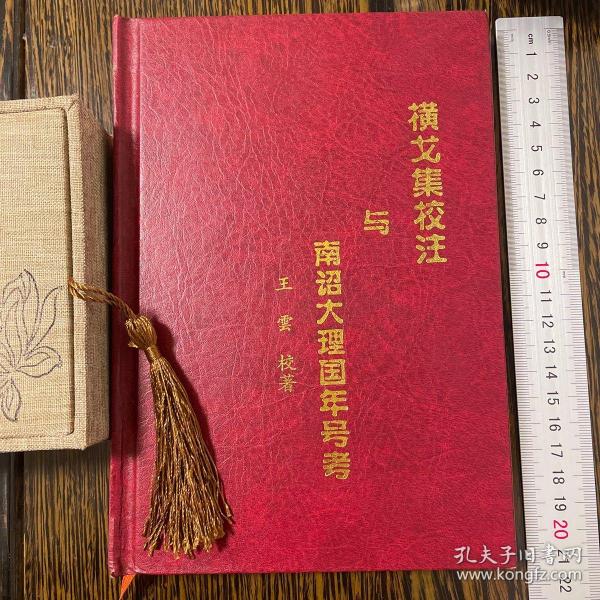 橫戈集校注
与
南诏大理国年号考
王雲 校著
cm 1 2 3 4 5 6 7 8 9 10 11 12 13 14 15 16 17 18 19 20 21 22
孔夫子旧书网
www.kongfz.com